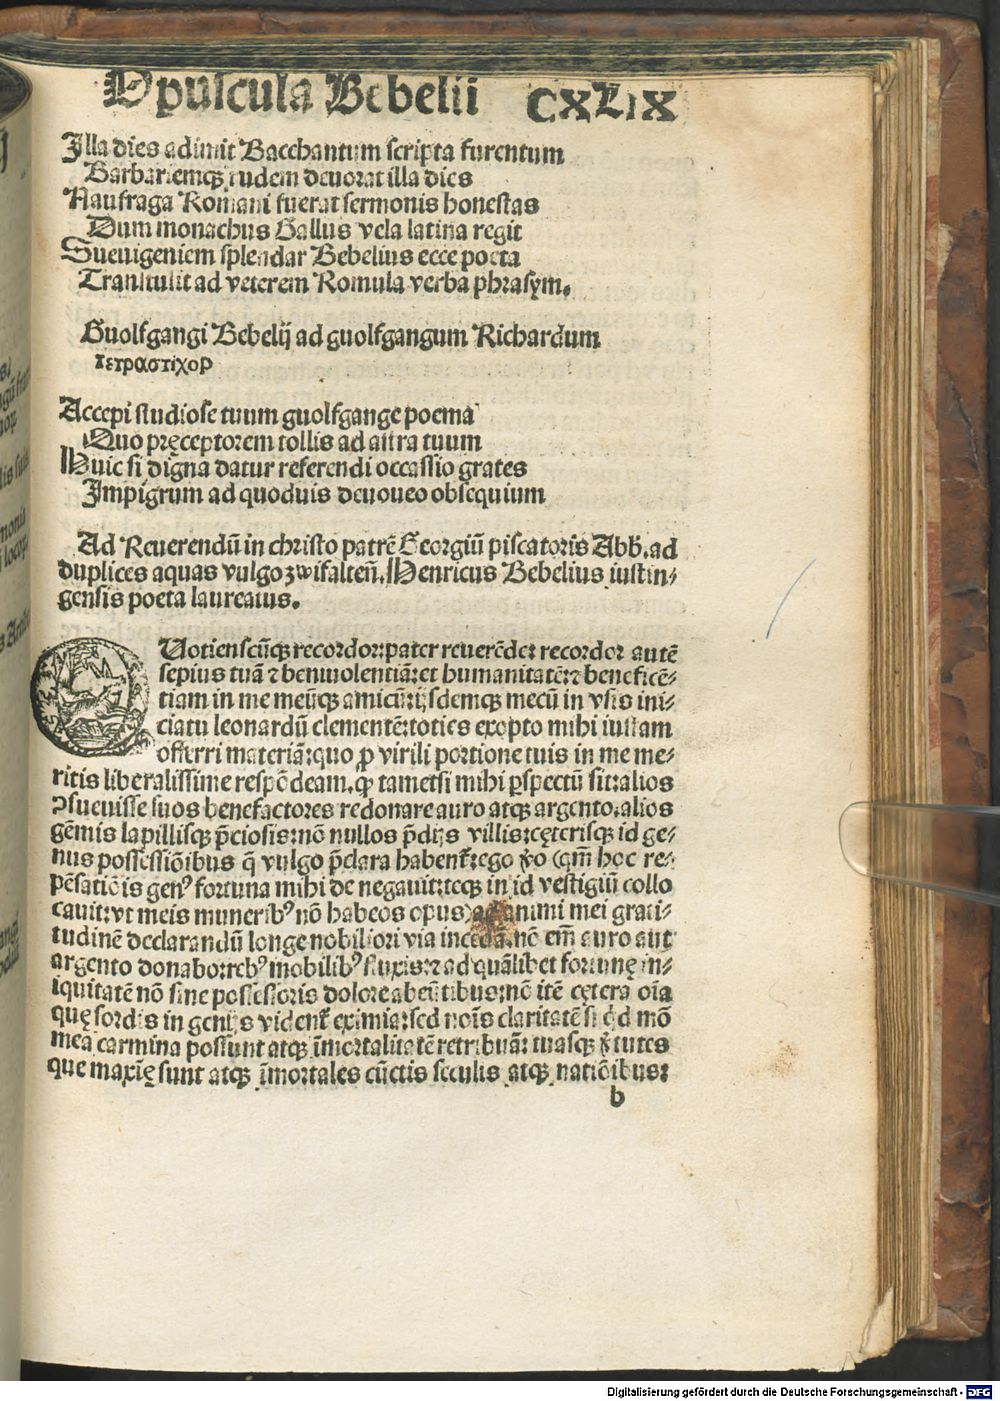 Opuscula Bebelii CXLIX
Illa dies adimit Bacchantum scripta furentum
Barbariemqꝫ rudem deuorat illa dies
Naufraga Romani fuerat sermonis honestas
Dum monachus Gallus vela latina regit
Sueuigeniem splendar Bebelius ecce poeta
Transtulit ad veterem Romula verba phrasym.
Guolfgangi Bebelij ad guolfgangum Richardum
τετραστιχορ
Accepi studiose tuum guolfgange poema
Quo pręceptorem tollis ad astra tuum
Huic si digna datur referendi occassio grates
Impigrum ad quoduis deuoueo obsequium
Ad Reuerendū in christo patrē Georgiū piscatoris Abb. ad
duplices aquas vulgo zwifalteñ. Henricus Bebelius iustin⸗
gensis poeta laureatus.
QUotienscūqꝫ recordor: pater reuerēde: recordor autē
sepius tuā ⁊ beniuolentiā: et humanitatē: ⁊ beneficē⸗
tiam in me meūqꝫ amicū: ijsdemqꝫ mecū in vsis ini⸗
ciatū leonardū clementē: toties exopto mihi iustam
offerri materiā: quo ꝓ virili portione tuis in me me⸗
ritis liberalissime respōdeam. ꝙ tametsi mihi ꝑspectū sit: alios
ꝯsueuisse suos benefactores redonare auro atqꝫ argento. alios
gēmis lapillisqꝫ p̄ciosis: nō nullos p̄dijs villis: cęterisqꝫ id ge⸗
nus possessiōibus q̄ vulgo p̄clara habent̄: ego ꝟo (qm̄ hoc re⸗
pēsatiōis genꝰ fortuna mihi denegauit: teqꝫ in id vestigiū collo
cauit: vt meis muneribꝰ nō habeas opus) ad animi mei grati⸗
tudinē declarandū longe nobiliori via incedā. nō em̄ auro aut
argento donabo: rebꝰ mobilibꝰ fluxis: ⁊ ad quālibet fortunę in⸗
iquitatē nō sine possessoris dolore abeūtibus: nō itē cętera oīa
quę sordis ingenijs vident̄ eximia: sed noīs claritatē si qd̄ mō
mea carmina possunt atqꝫ īmortalitatē retribuā: tuasqꝫ ꝟtutes
que maxīę sunt atqꝫ īmortales cūctis seculis atqꝫ natiōibus:
b
Digitalisierung gefördert durch die Deutsche Forschungsgemeinschaft - DFG